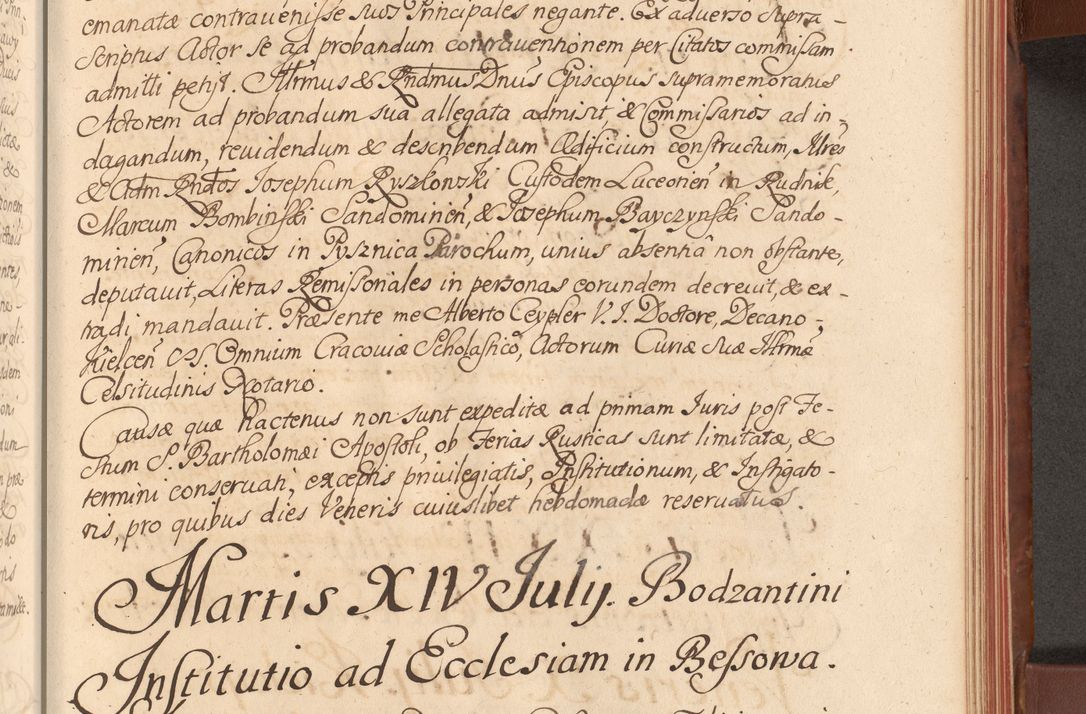 emanatæ contrauenisse suos Principales negante. Ex aduerso supra-
scriptus Actor se ad probandum contrauentionem per Citatos commissam
admitti petijt. Illrmus & Rndmus Dnus Episcopus supramemoratus
Actorem ad probandum sua allegata admisit, & Commissarios ad in-
dagandum, reuidendum & describendum Ædificium constructum, Illres
& Adm Rndos Josephum Ryszkonski Custodem Luceorien in Rudnik,
Marcum Bombinski Sandominien, & Josephum Bayczynski Sando-
minien, Canonicos in Pysznica Parochum, unius absentia non obstante,
deputauit, Literas Remissoriales in personas eorundem decreuit, & ex-
tradi, mandauit. Præsente me Alberto Ceypler V. J. Doctore, Decano
Kielcen SS. Omnium Cracouiæ Scholastico, Actorum Curiæ suæ Illrmæ
Celsitudinis Notario.
Causæ quæ hactenus non sunt expeditæ ad primam Juris post Fe-
stum S. Bartholomæi Apostoli, ob Ferias Rusticas sunt limitatæ, &
termini conseruati, exceptis priuilegiatis, Institutionum, & Instigato-
ris, pro quibus dies Veneris cuiuslibet hebdomadæ reseruatus.
Martis XIV Julij. Bodzantini
Institutio ad Ecclesiam in Bessowa.